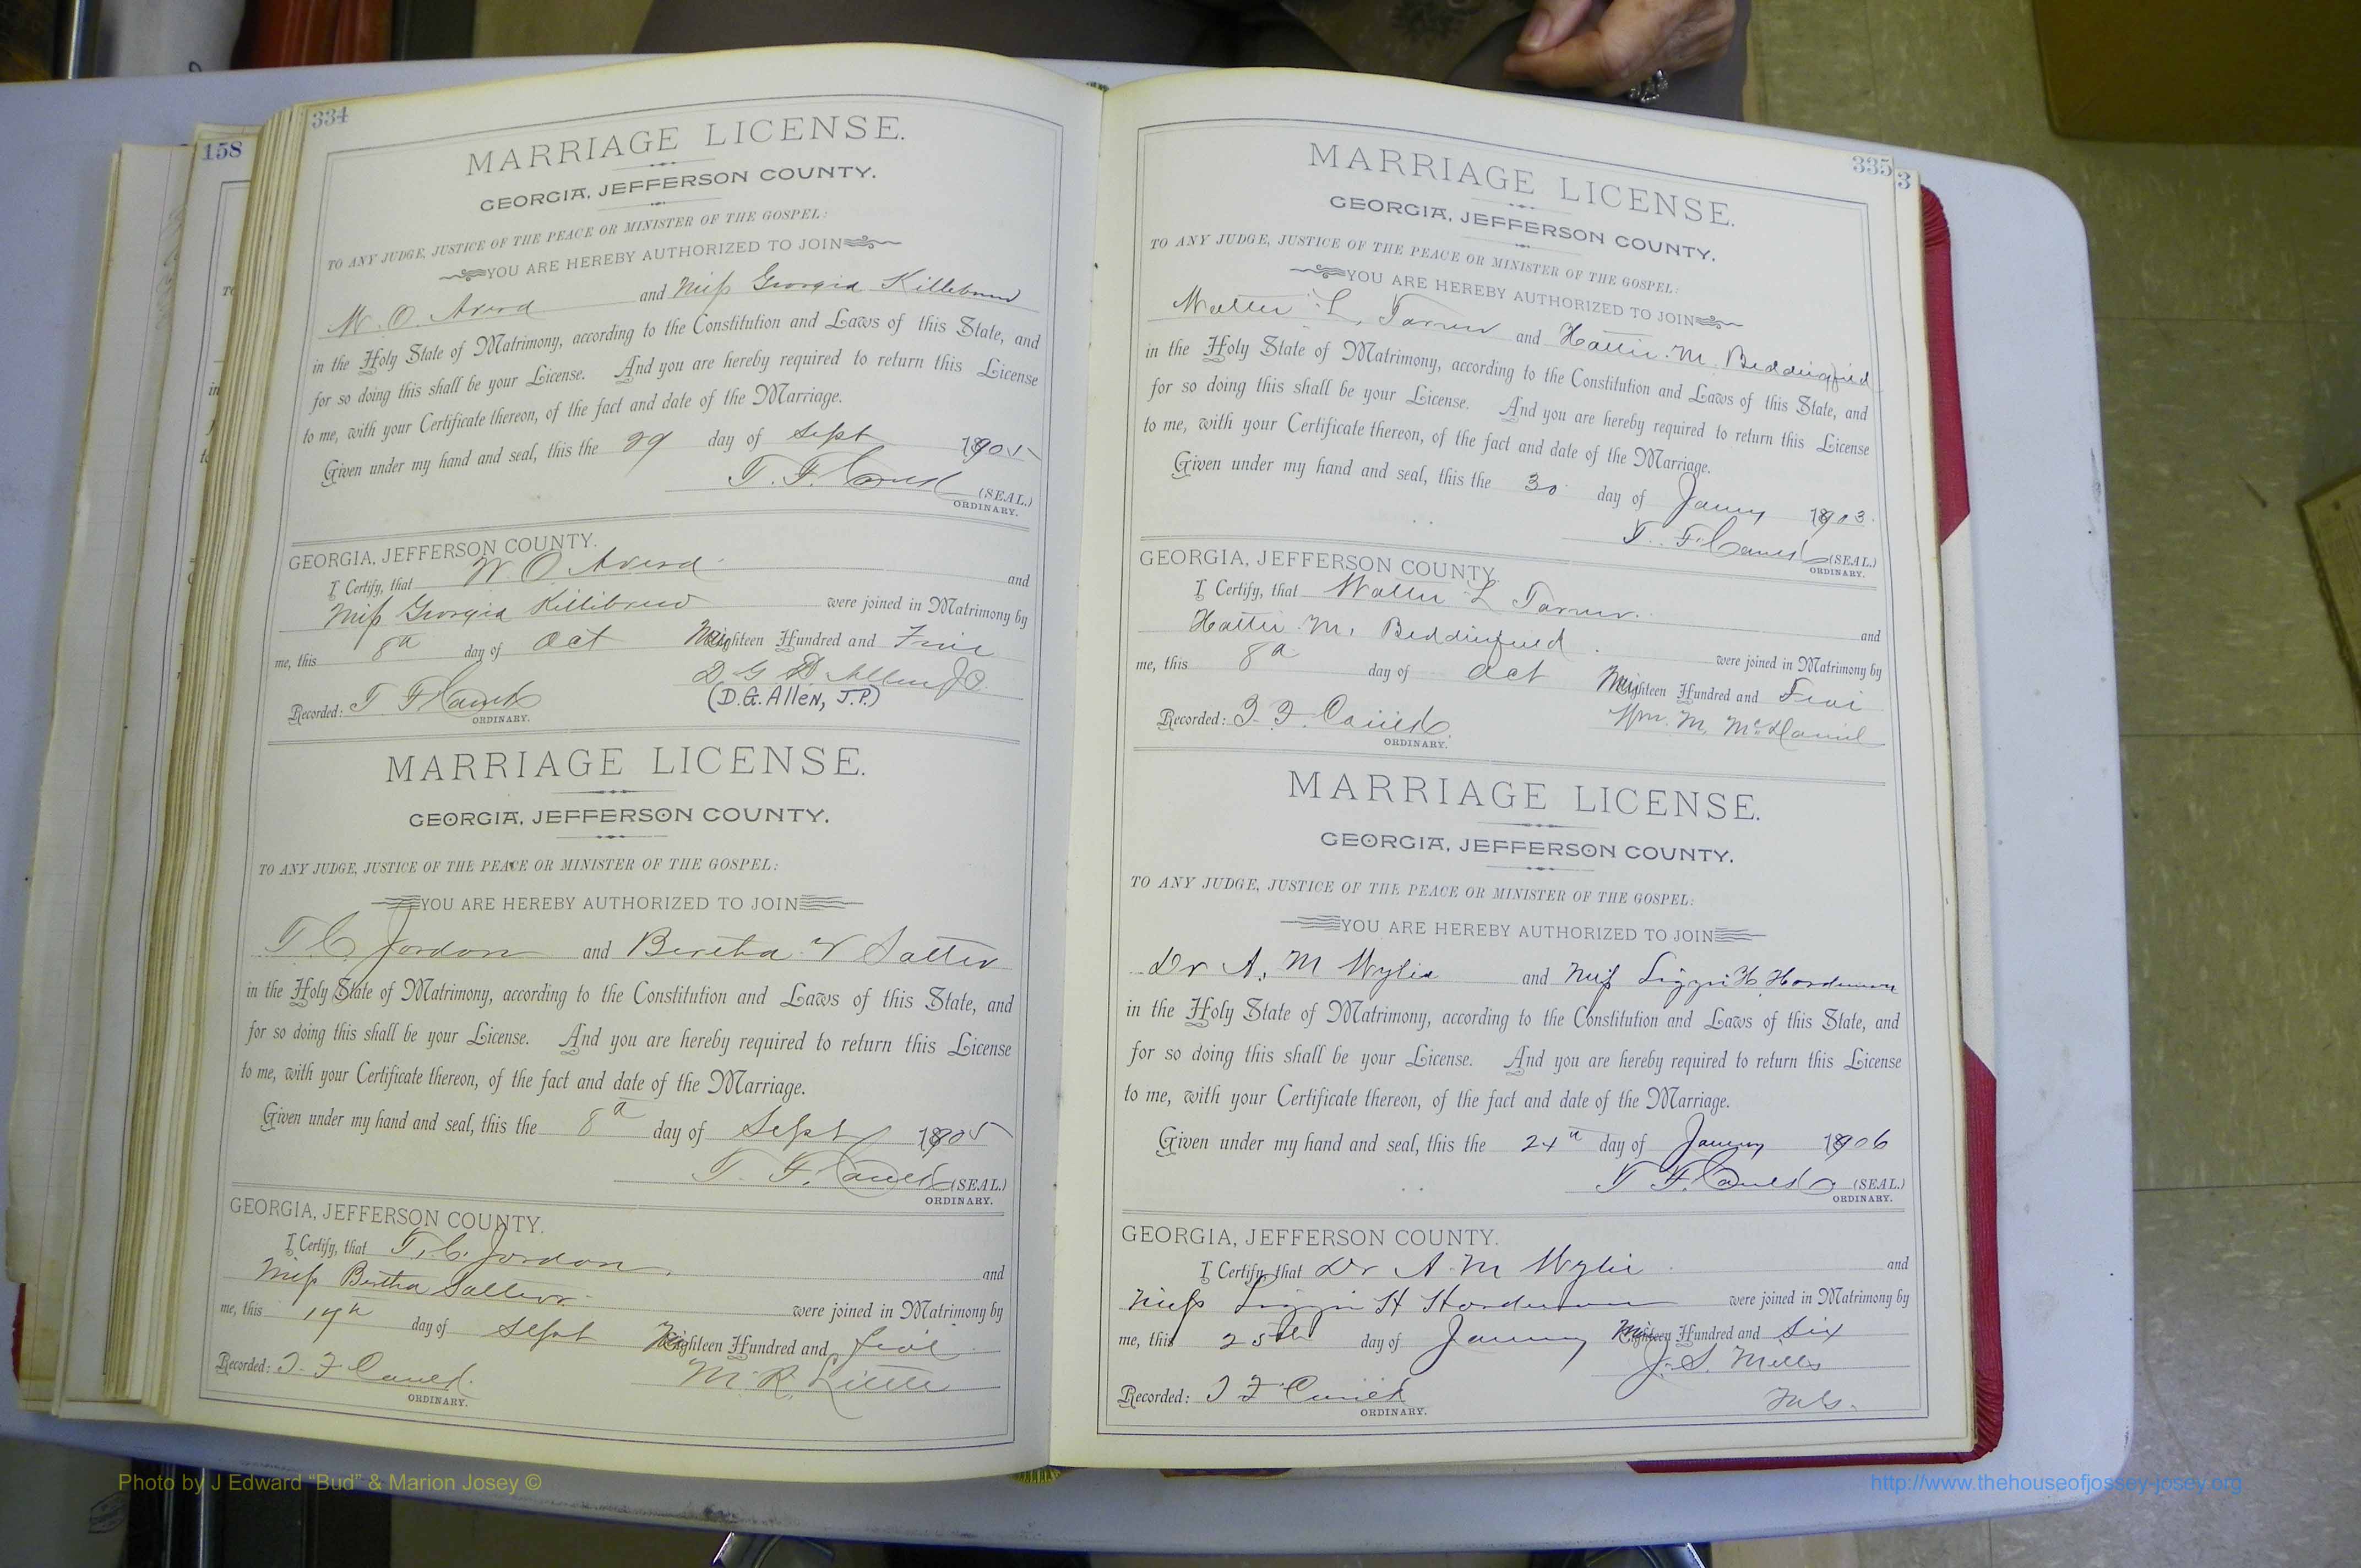 334
MARRIAGE LICENSE.
GEORGIA, JEFFERSON COUNTY.
TO ANY JUDGE, JUSTICE OF THE PEACE OR MINISTER OF THE GOSPEL:
YOU ARE HEREBY AUTHORIZED TO JOIN
W. O. Averd and Miss Georgia Killebrew
in the Holy State of Matrimony, according to the Constitution and Laws of this State, and
for so doing this shall be your License. And you are hereby required to return this License
to me, with your Certificate thereon, of the fact and date of the Marriage.
Given under my hand and seal, this the 29 day of Sept 1905
T. F. (SEAL.)
ORDINARY.
GEORGIA, JEFFERSON COUNTY.
I Certify, that W. O. Averd and
Miss Georgia Killibrew were joined in Matrimony by
me, this 8th day of Oct Hundred and Five
D G Allen J.P.
(D.G. Allen, J.P.)
Recorded: T F
ORDINARY.
MARRIAGE LICENSE.
GEORGIA, JEFFERSON COUNTY.
TO ANY JUDGE, JUSTICE OF THE PEACE OR MINISTER OF THE GOSPEL:
YOU ARE HEREBY AUTHORIZED TO JOIN
T C Jordon and Bertha V Salter
in the Holy State of Matrimony, according to the Constitution and Laws of this State, and
for so doing this shall be your License. And you are hereby required to return this License
to me, with your Certificate thereon, of the fact and date of the Marriage.
Given under my hand and seal, this the 8th day of Sept 1905
T. F. (SEAL.)
ORDINARY.
GEORGIA, JEFFERSON COUNTY.
I Certify, that T. C. Jordon and
Miss Bertha Salter were joined in Matrimony by
me, this day of Sept Hundred and five
M R. Little
Recorded: T F
ORDINARY.
158
335
3
MARRIAGE LICENSE.
GEORGIA, JEFFERSON COUNTY.
TO ANY JUDGE, JUSTICE OF THE PEACE OR MINISTER OF THE GOSPEL:
YOU ARE HEREBY AUTHORIZED TO JOIN
Walter L. Tarver and Hattie M. Beddingfied
in the Holy State of Matrimony, according to the Constitution and Laws of this State, and
for so doing this shall be your License. And you are hereby required to return this License
to me, with your Certificate thereon, of the fact and date of the Marriage.
Given under my hand and seal, this the 30 day of 1903
T. F. (SEAL.)
ORDINARY.
GEORGIA, JEFFERSON COUNTY.
I Certify, that Walter L Tarver and
Hattie M. Beddingfield were joined in Matrimony by
me, this 8th day of Oct Hundred and Five
Wm. M. McDaniel
Recorded: T. F.
ORDINARY.
MARRIAGE LICENSE.
GEORGIA, JEFFERSON COUNTY.
TO ANY JUDGE, JUSTICE OF THE PEACE OR MINISTER OF THE GOSPEL:
YOU ARE HEREBY AUTHORIZED TO JOIN
Dr A. M Wylie and Miss Lizzie H Hardeman
in the Holy State of Matrimony, according to the Constitution and Laws of this State, and
for so doing this shall be your License. And you are hereby required to return this License
to me, with your Certificate thereon, of the fact and date of the Marriage.
Given under my hand and seal, this the 24th day of 1906
T F. (SEAL.)
ORDINARY.
GEORGIA, JEFFERSON COUNTY.
I Certify, that Dr A. M Wylie and
Miss Lizzie H Hardeman were joined in Matrimony by
me, this 25th day of Hundred and Six
J. S. Mills
M.G.
Recorded: T F
ORDINARY.
Photo by J Edward “Bud” & Marion Josey ©
http://www.thehouseofjossey-josey.org